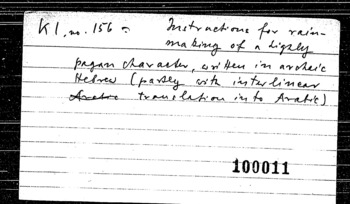 K 1, no. 156 = Instructions for rain-
making of a highly
pagan character, written in archaic
Hebrew (partly with interlinear
Arabic translation into Arabic)
100011